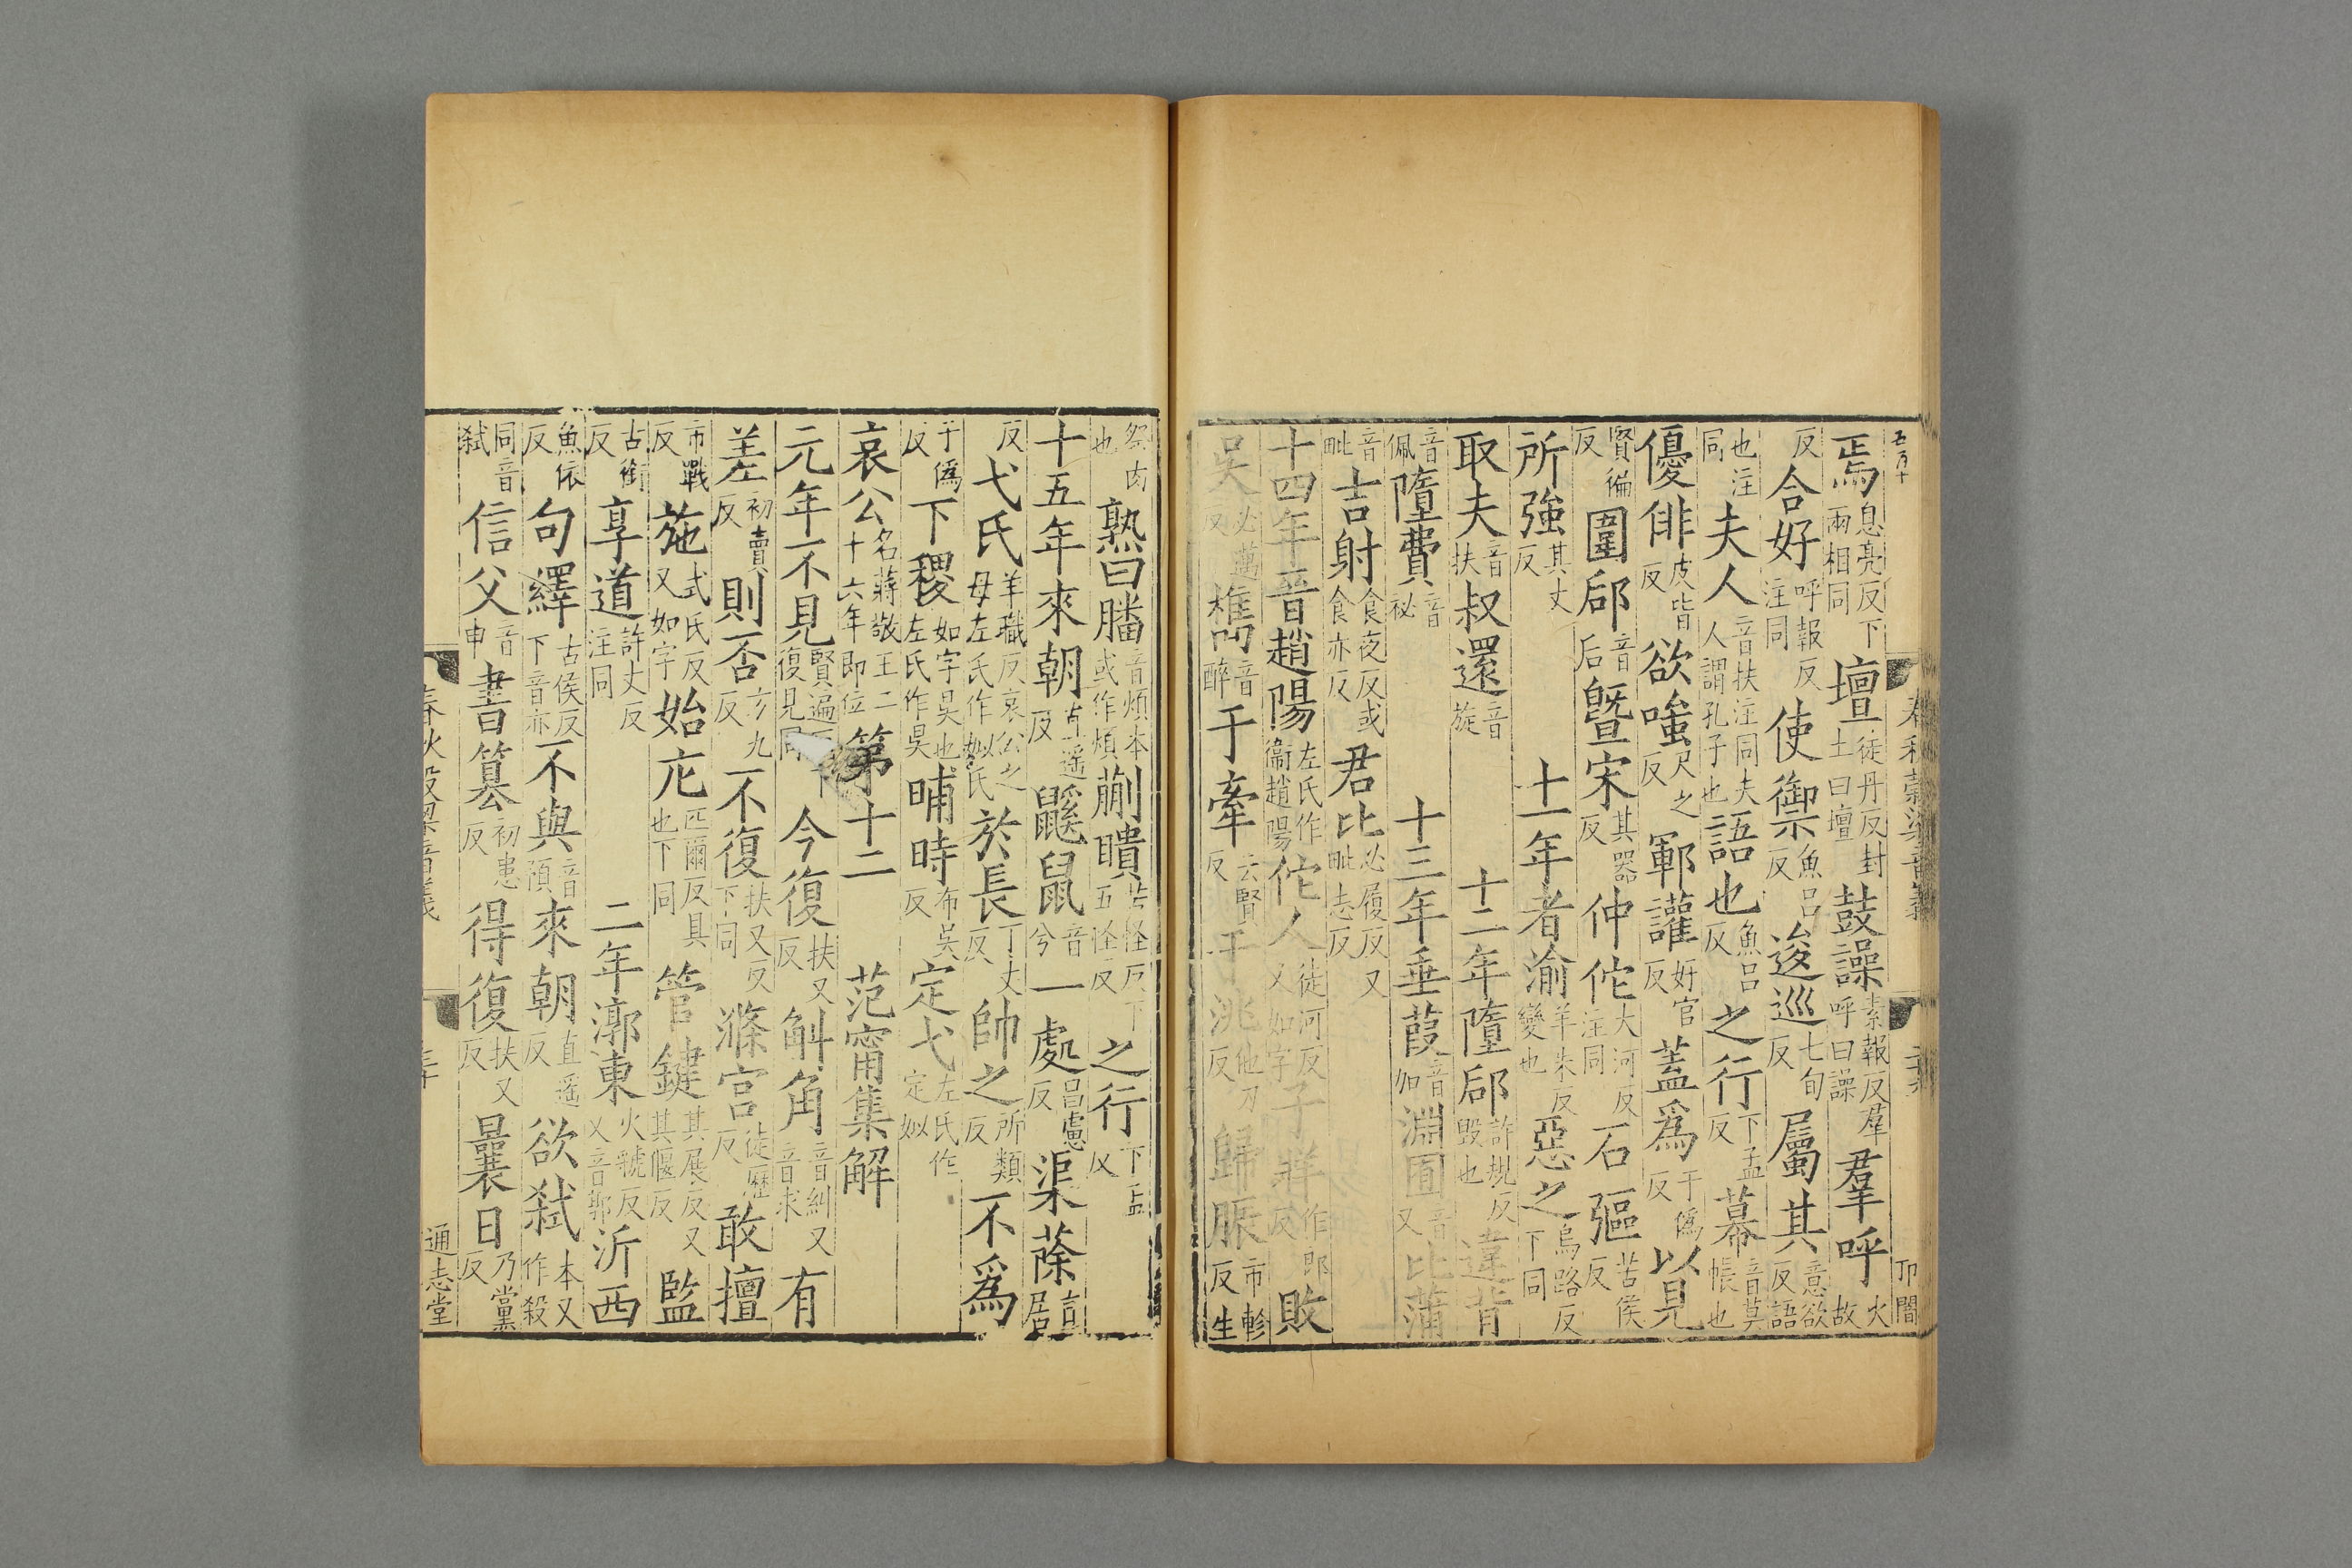 焉息亮反下兩相同壇徒丹反封土曰壇鼓譟素報反羣呼曰譟羣呼火故
反合好呼報反注同使御魚呂反逡巡七旬反屬其意欲反語
也注同夫人音扶注同夫人謂孔子也語也魚呂反之行下孟反幕音莫帳也
優俳皮皆反欲嗤尺之反鄆讙好官反蓋爲于僞反以見
賢徧反圍郈音后暨宋其器反仲佗大河反注同石彄苦侯反
所強其丈反十一年者渝羊朱反變也惡之烏路反下同
取夫音扶叔還音旋十二年墮郈許規反毀也違背
音佩墮費音祕十三年垂葭音加淵囿音又比蒲
音毗吉射食夜反或食亦反君比必履反又毗志反
十四年晉趙陽左氏作衞趙陽佗人徒河反又如字子牂作郎反敗
吳必邁反檇音醉于牽去賢反于洮他刀反歸脤市軫反生
祭肉也熟曰膰音煩本或作燔蒯聵苦怪反下五怪反之行下孟反
十五年來朝直遥反鼷鼠音兮一處昌慮反渠蒢音居
反弋氏羊職反哀公之母左氏作姒氏於長丁丈反帥之所類反不爲
于僞反下稷如字昊也左氏作昃晡時布吳反定弋左氏作定姒
哀公名蔣敬王二十六年即位第十二 范甯集解
元年不見賢遍反下復見同今復扶又反斛角音糾又音求有
差初賣反則否方九反不復扶又反下同滌宫徒歷反敢擅
市戰反施式氏反又如字始庀匹爾反具也下同管鍵其展反又其偃反監
古銜反享道許丈反注同二年漷東火虢反又音郭沂西
魚依反句繹古侯反下音亦不與音預來朝直遥反欲弑本又作殺
同音弑信父音申書篡初患反得復扶又反曩日乃黨反
通志堂